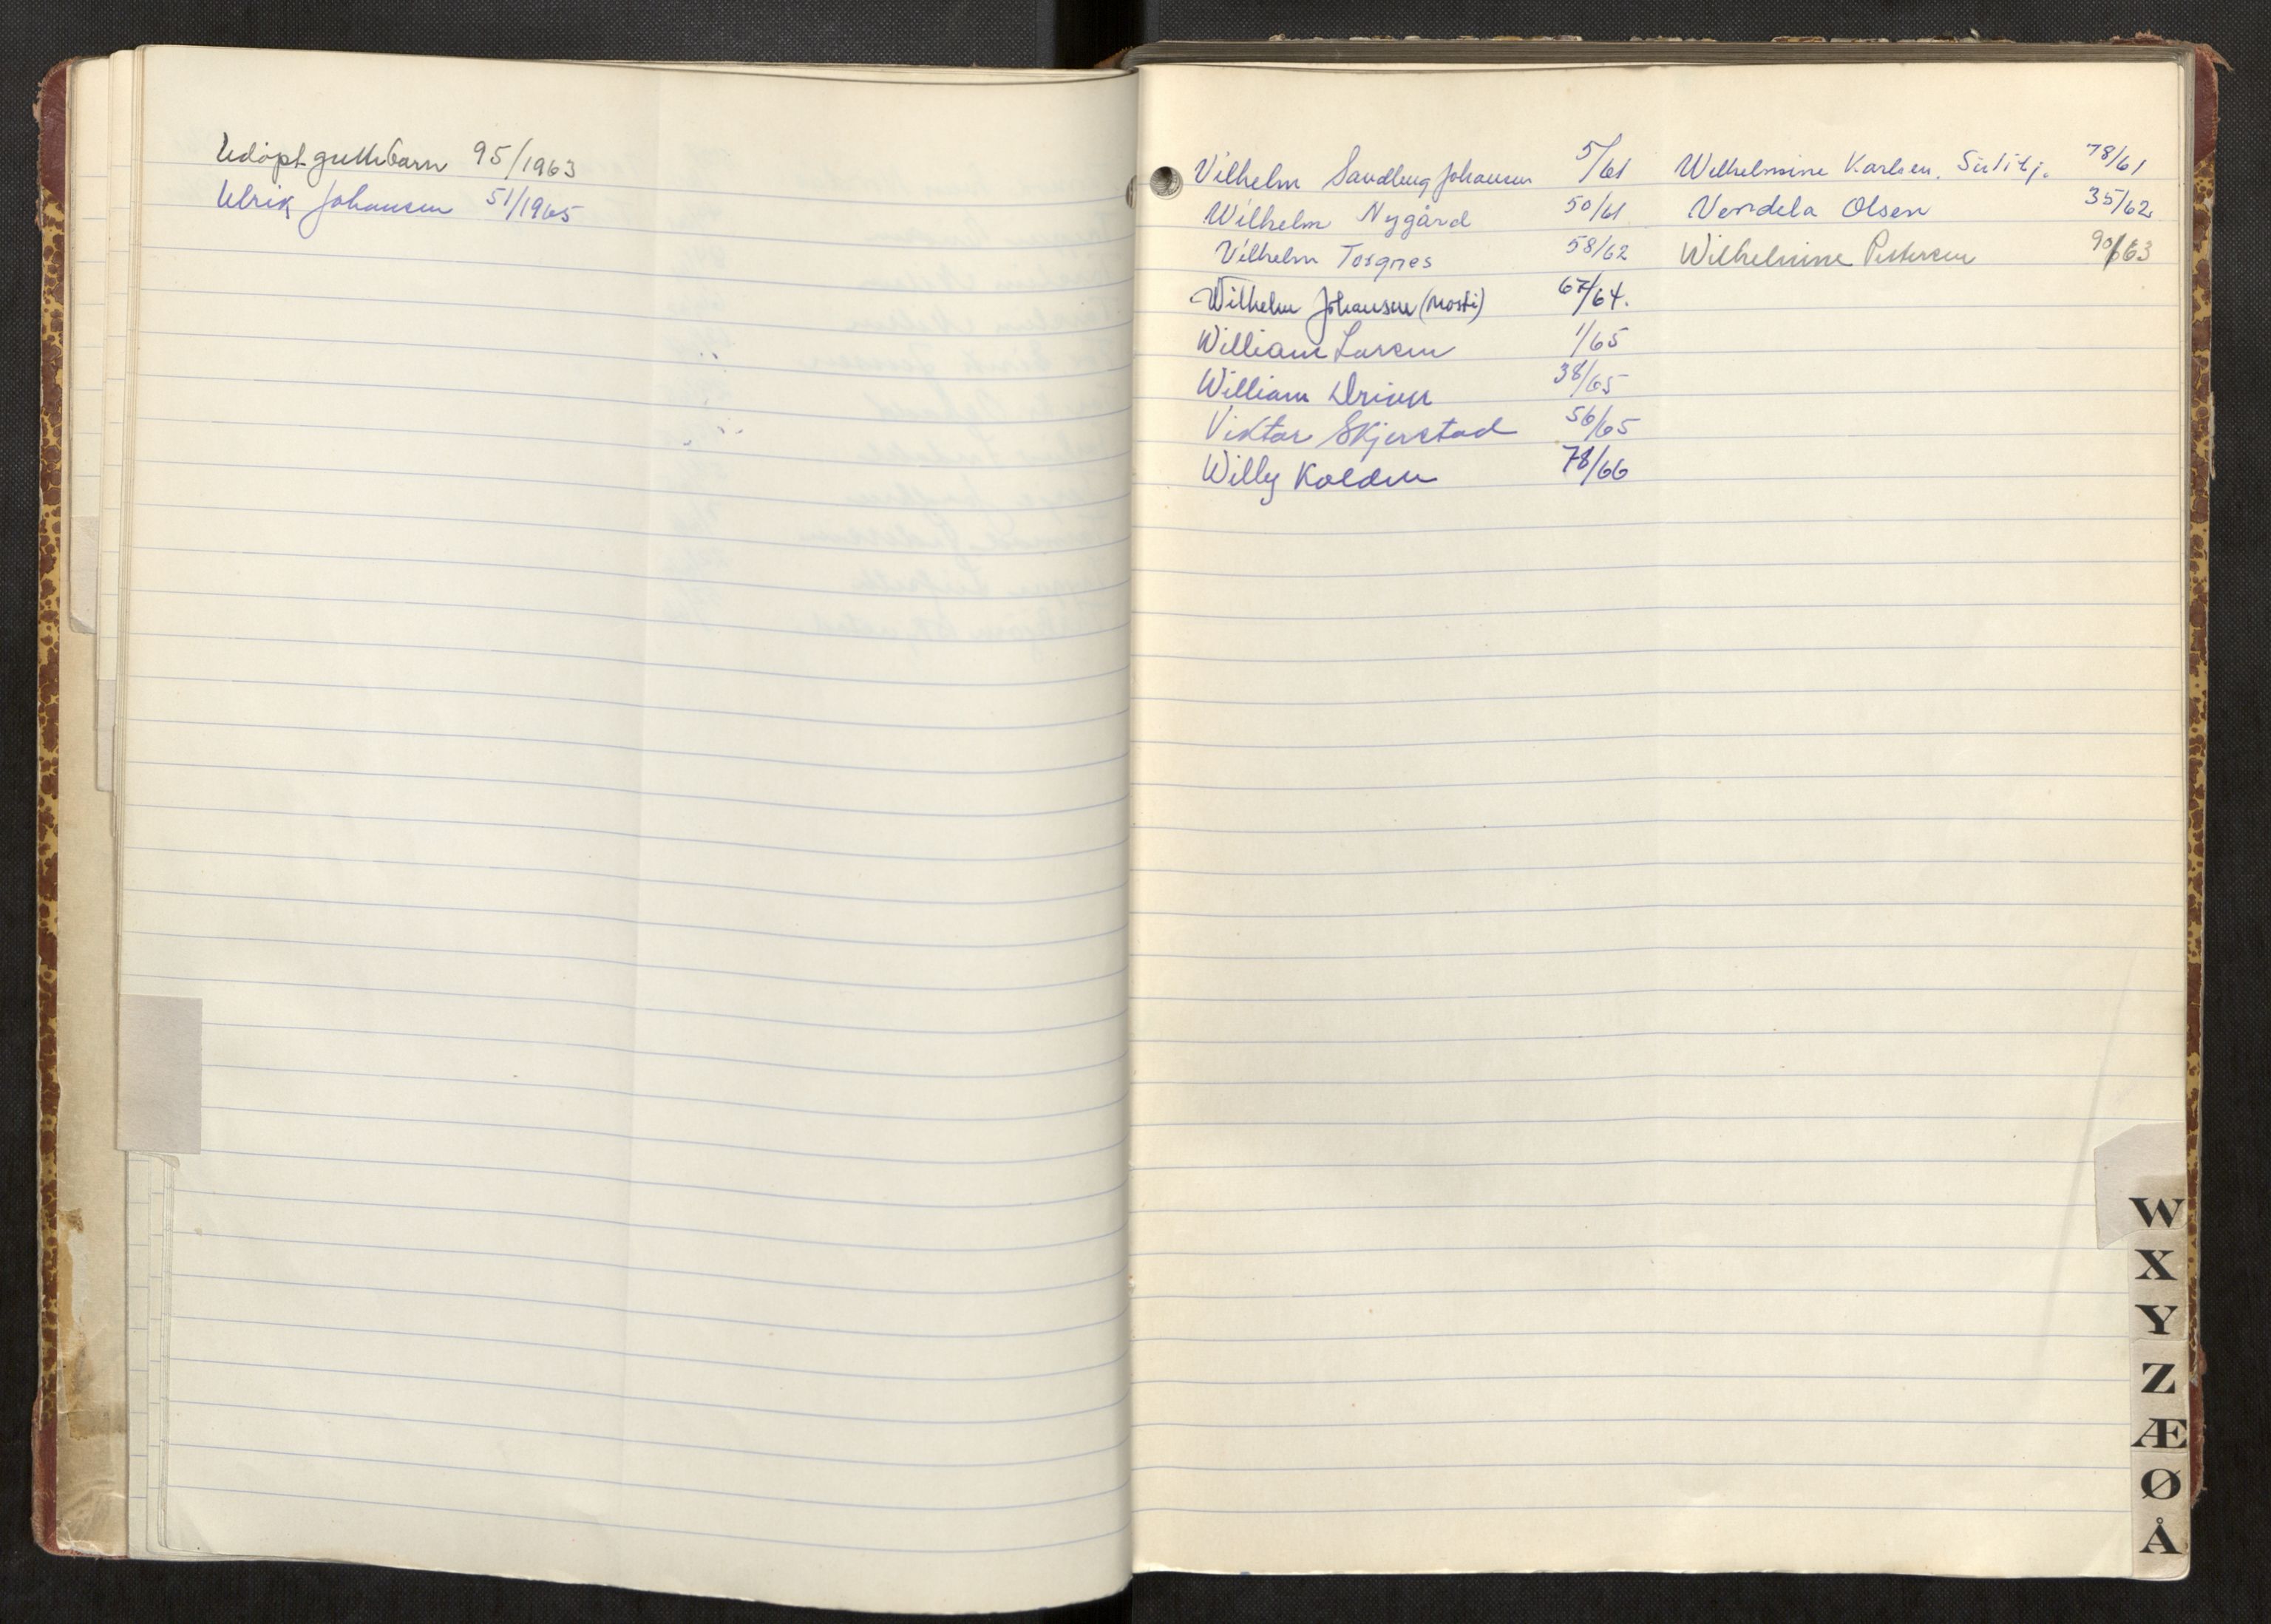 Udöpt guttebarn 95/1963
Ulrik Johansen 51/1965
Vilhelm Sandberg Johansen 5/61
Wilhelm Nygård 50/61
Vilhelm Torgnes 58/62
Wilhelm Johansen (Mosti) 67/64.
William Larsen 1/65
William Driven 38/65
Viktor Skjerstad 56/65
Willy Kolden 78/66
Wilhelmine Karlsen. Sulitj. 78/61
Vendela Olsen 35/62
Wilhelmine Pettersen 90/63
W
X
Y
Z
Æ
Ø
Å